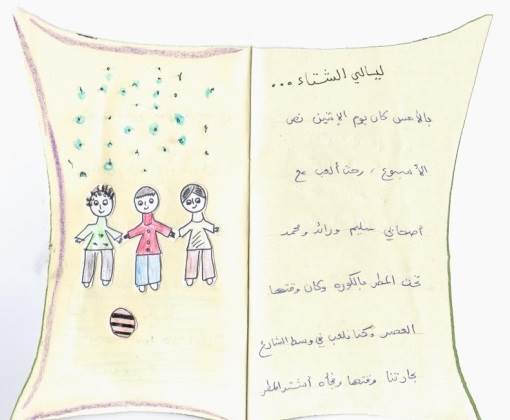 ليالي الشتاء ...
بالأمس كان يوم الإثنين نص
الأسبوع ، رحت ألعب مع
أصحابي سليم ورائد ومحمد
تحت المطر بالكوره وكان وقتها
العصر وكنا نلعب في وسط الشارع
بحارتنا وقتها وفجأه أشتد المطر